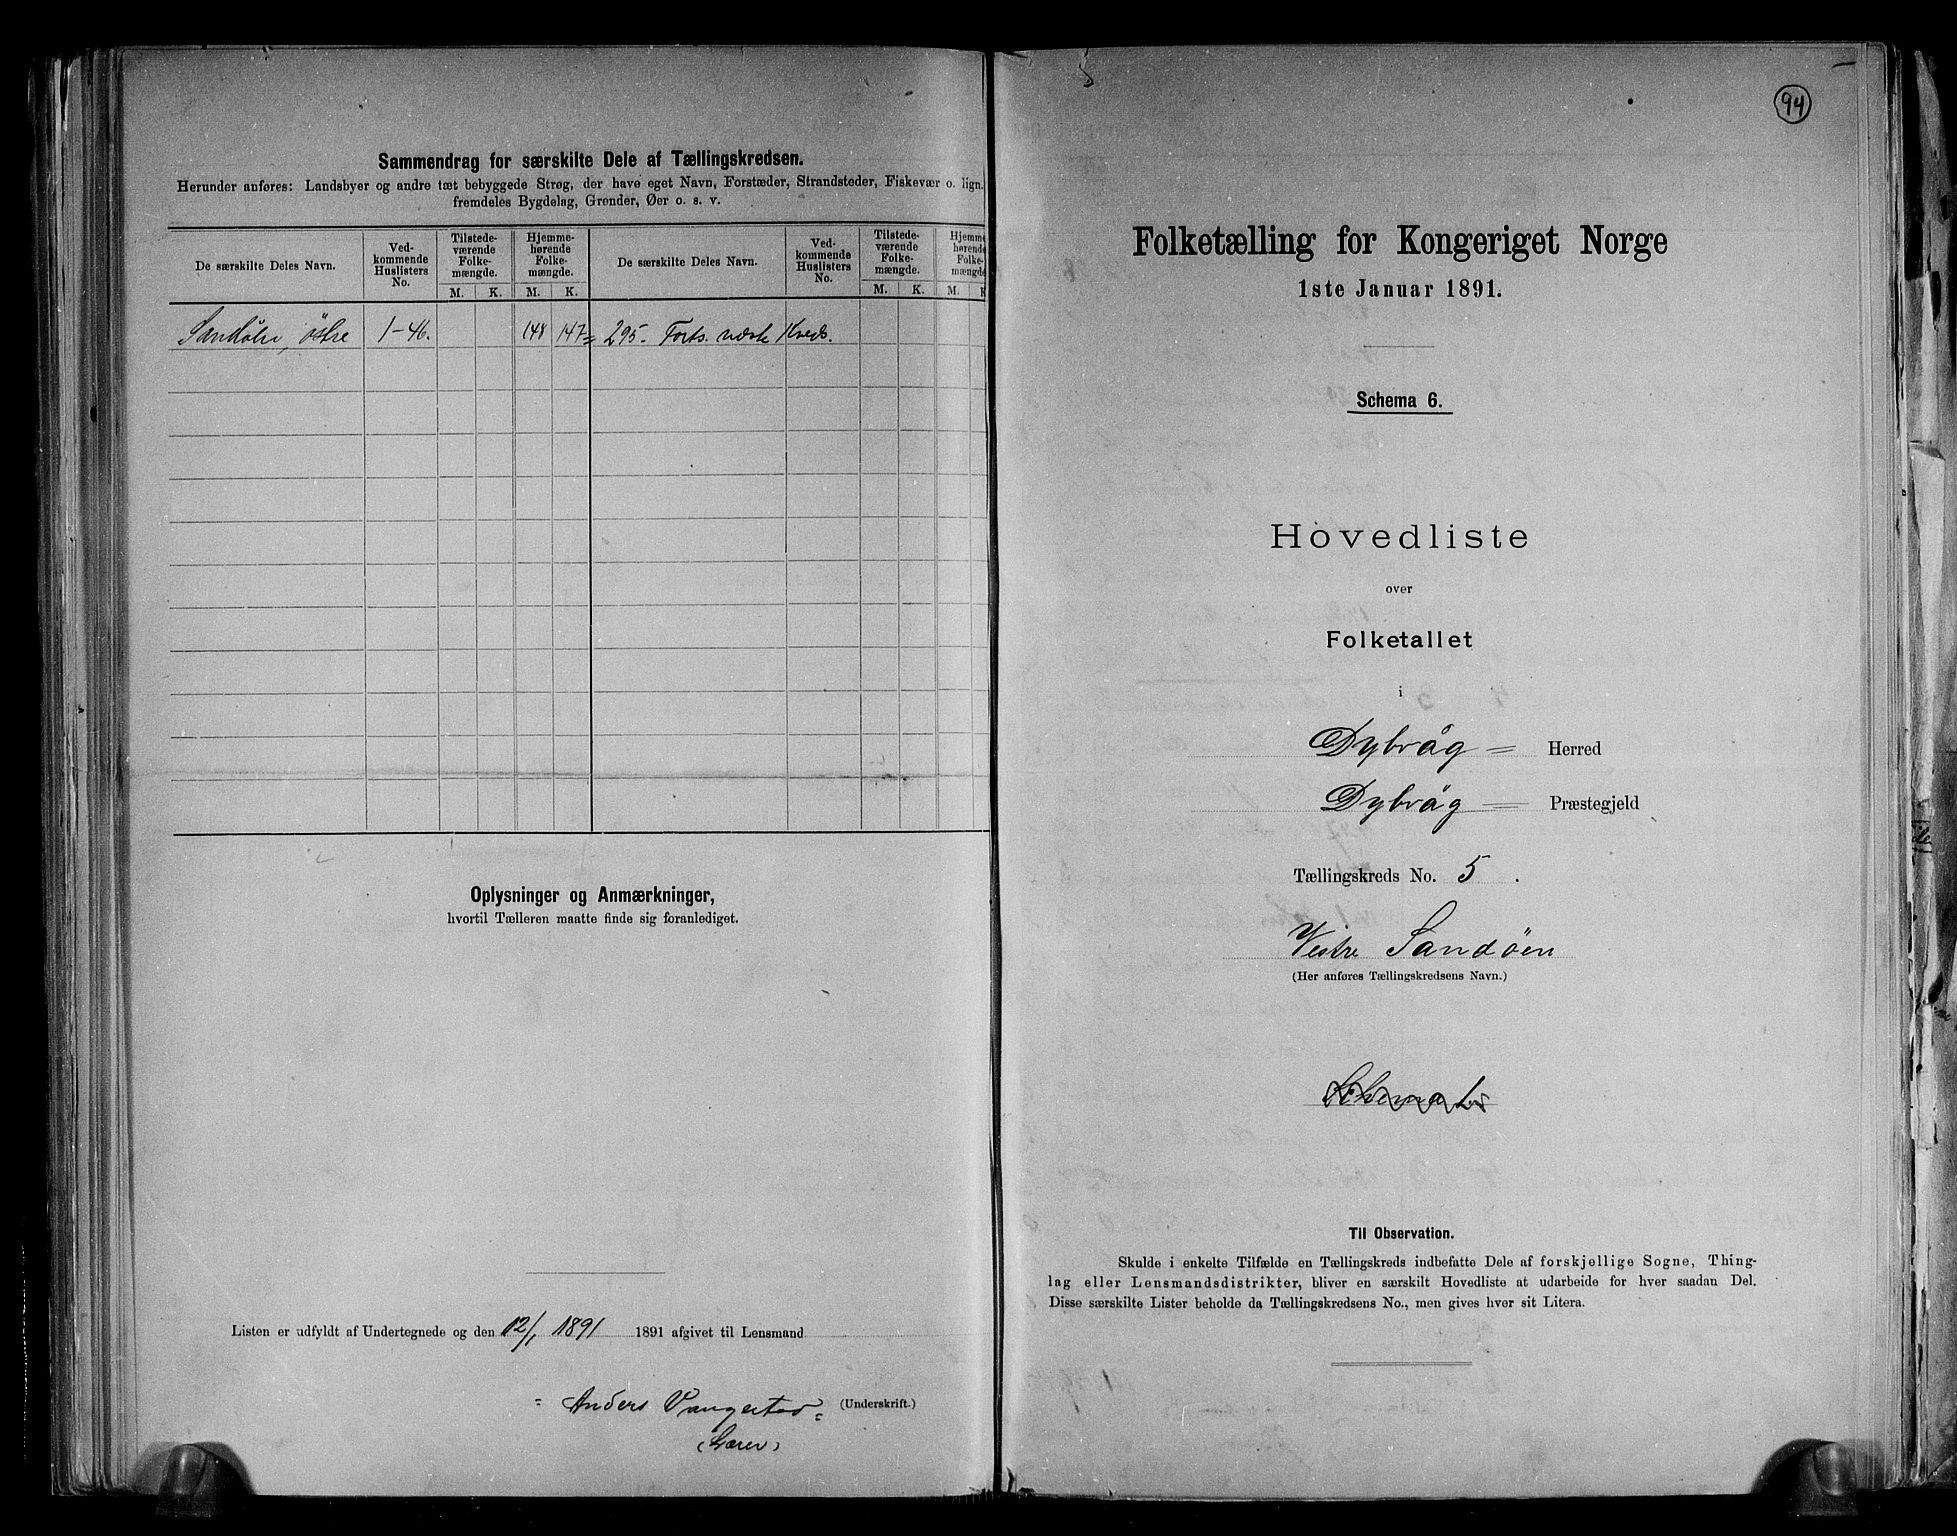 Sammendrag for særskilte Dele af Tællingskredsen.
Herunder anføres: Landsbyer og andre tæt bebyggede Strøg, der have eget Navn, Forstæder, Strandsteder, Fiskevær o. lign.
fremdeles Bygdelag, Grender, Øer o. s. v.
De særskilte Deles Navn.
Ved-
kommende
Huslisters
No.
Tilstede-
værende
Folke-
mængde.
M. K.
Hjemme-
hørende
Folke-
mængde.
M. K.
De særskilte Deles Navn.
Ved-
kommende
Huslisters
No.
Tilstede-
værende
Folke-
mængde.
M. K.
Hjemme
hørende
Folke-
mængde
M. K
Sandøen, östre 1-46. 148 147 = 295. Forts. næste Kreds.
Oplysninger og Anmærkninger,
hvortil Tælleren maatte finde sig foranlediget.
Listen er udfyldt af Undertegnede og den 12/1 1891 1891 afgivet til Lensmand
Anders Vangestad (Underskrift.)
(Lærer)
94
Folketælling for Kongeriget Norge
1ste Januar 1891.
Schema 6.
Hovedliste
over
Folketallet
i
Dybvåg = Herred
Dybvåg = Præstegjeld
Tællingskreds No. 5.
Vestre Sandöen
(Her anføres Tællingskredsens Navn.)
Til Observation.
Skulde i enkelte Tilfælde en Tællingskreds indbefatte Dele af forskjellige Sogne, Thing-
lag eller Lensmandsdistrikter, bliver en særskilt Hovedliste at udarbeide for hver saadan Del.
Disse særskilte Lister beholde da Tællingskredsens No., men gives hver sit Litera.